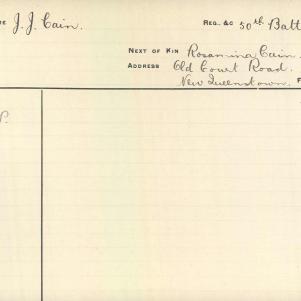 J. J. Cain. REG. &C 50th Batt
NEXT OF KIN Rosanina Cain.
ADDRESS Old Court Road.
New Queenstown. F
P.